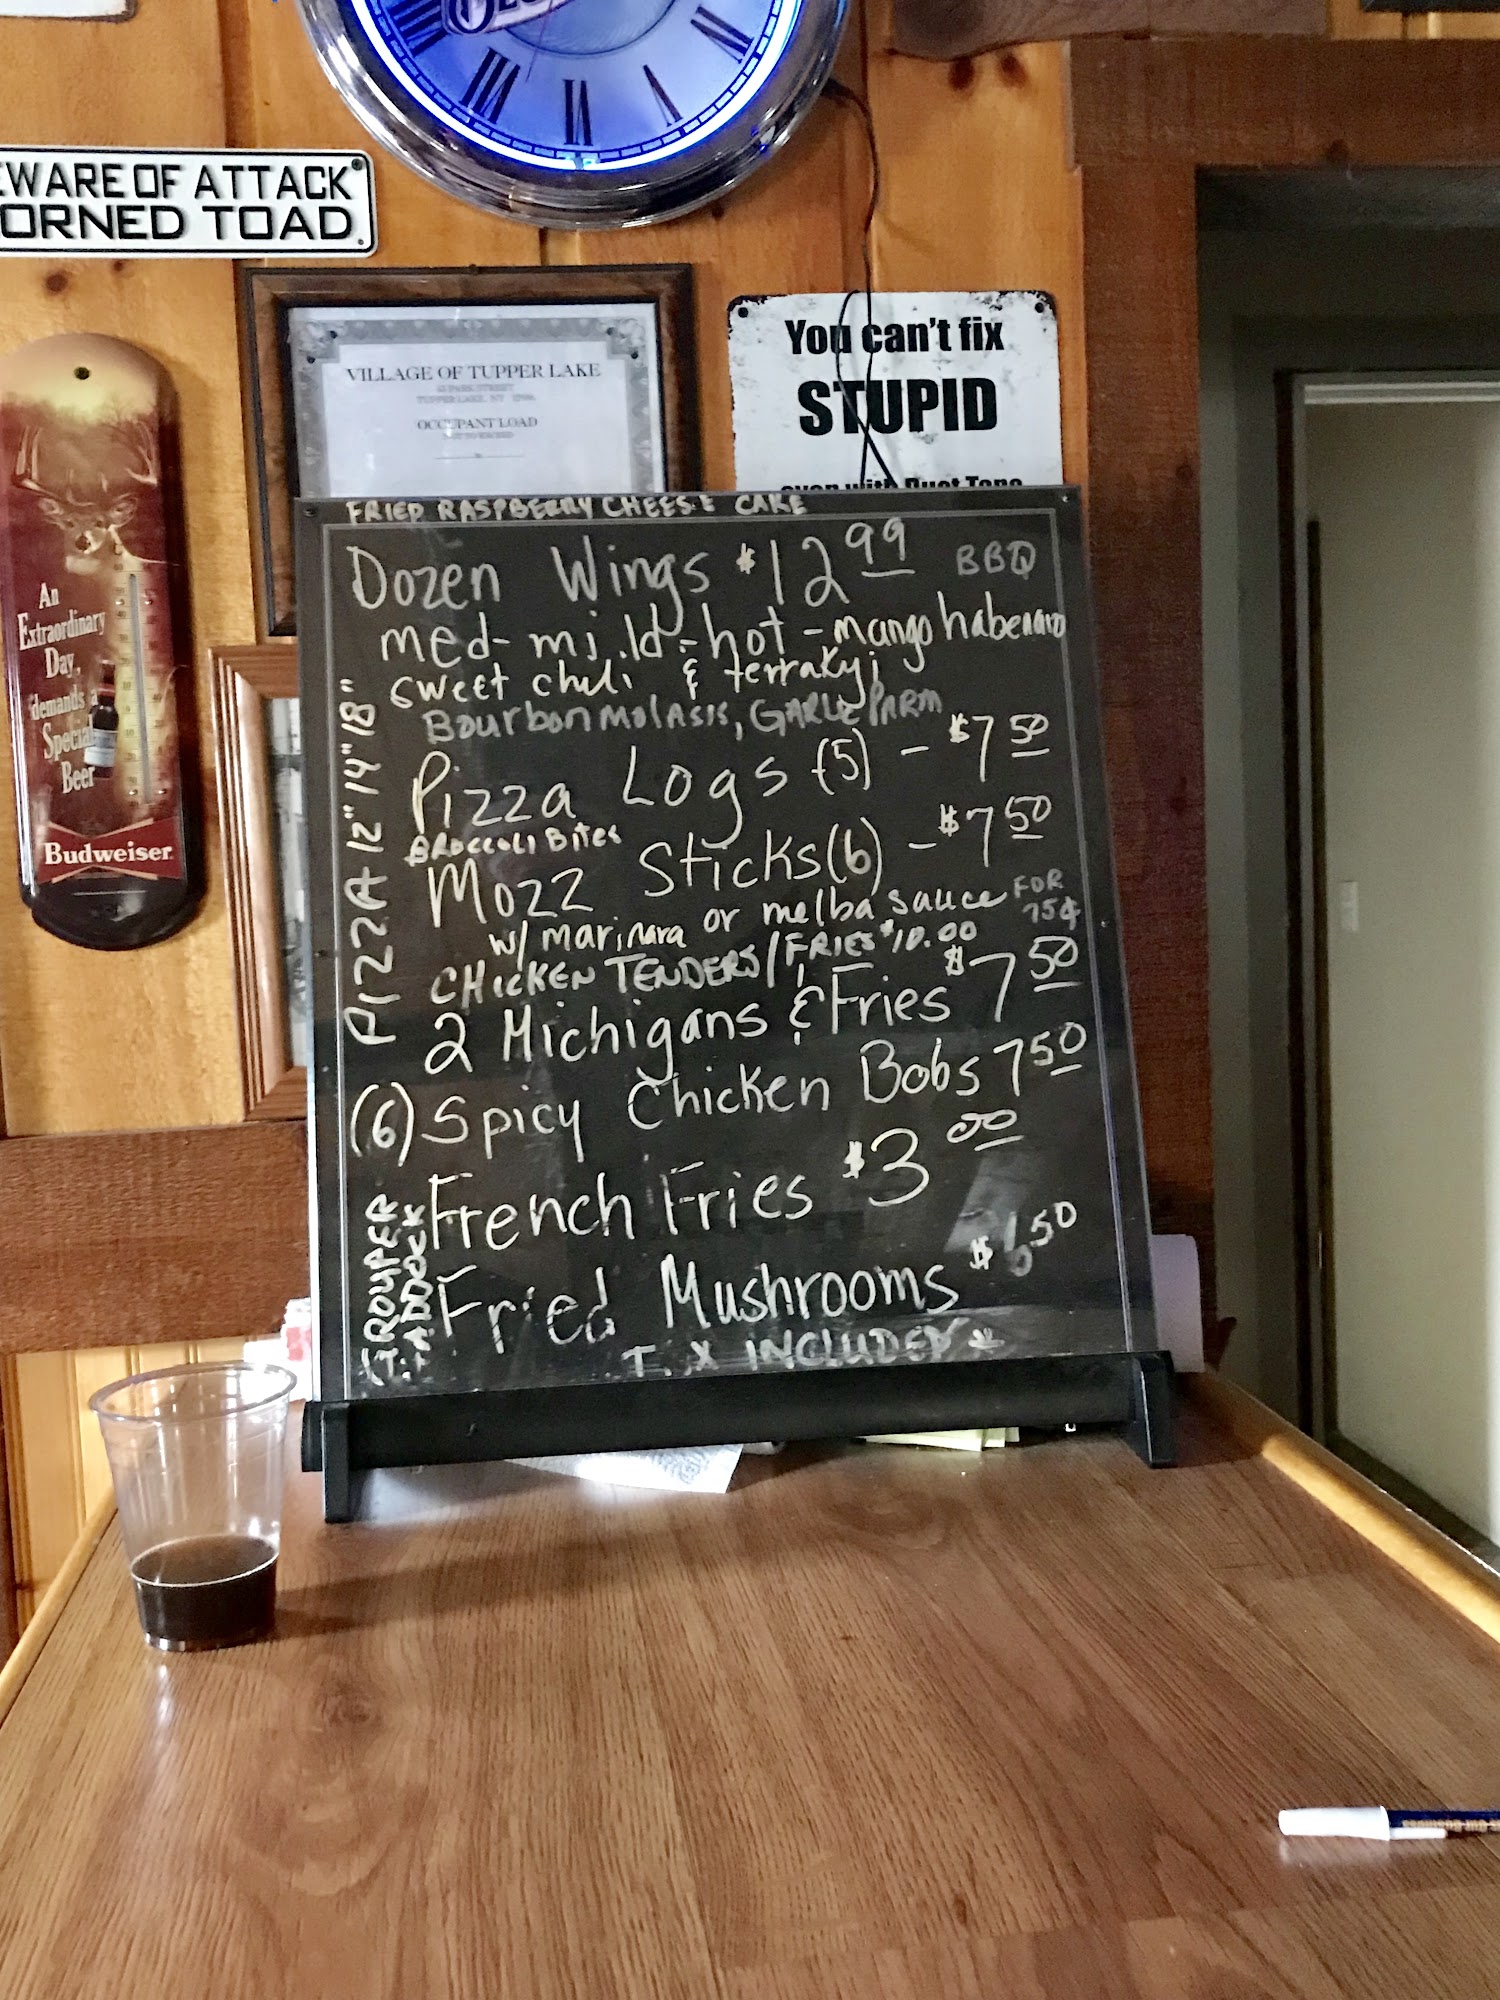 WARE OF ATTACK
ORNED TOAD
VILLAGE OF TUPPER LAKE
OCCUPANT LOAD
You can't fix
STUPID
even with Duct Tape
An
Extraordinary
Day,
demands a
Special
Beer
Budweiser
FRIED RASPBERRY CHEESE CAKE
Dozen Wings $12.99 BBQ
med- mild - hot - mango habenaro
sweet chili & terrakyi
Bourbon molasis, GARLIC PARM
Pizza Logs (5) - $7.50
BROCCOLI BITES
Mozz Sticks (6) - $7.50
w/ marinara or melba sauce FOR 75¢
CHICKEN TENDERS/FRIES $10.00
2 Michigans & Fries $7.50
(6) Spicy Chicken Bobs 7.50
French Fries $3.00
Fried Mushrooms $6.50
T X INCLUDED *
PIZZA 12" 14" 18"
GROUPER
HADDOCK